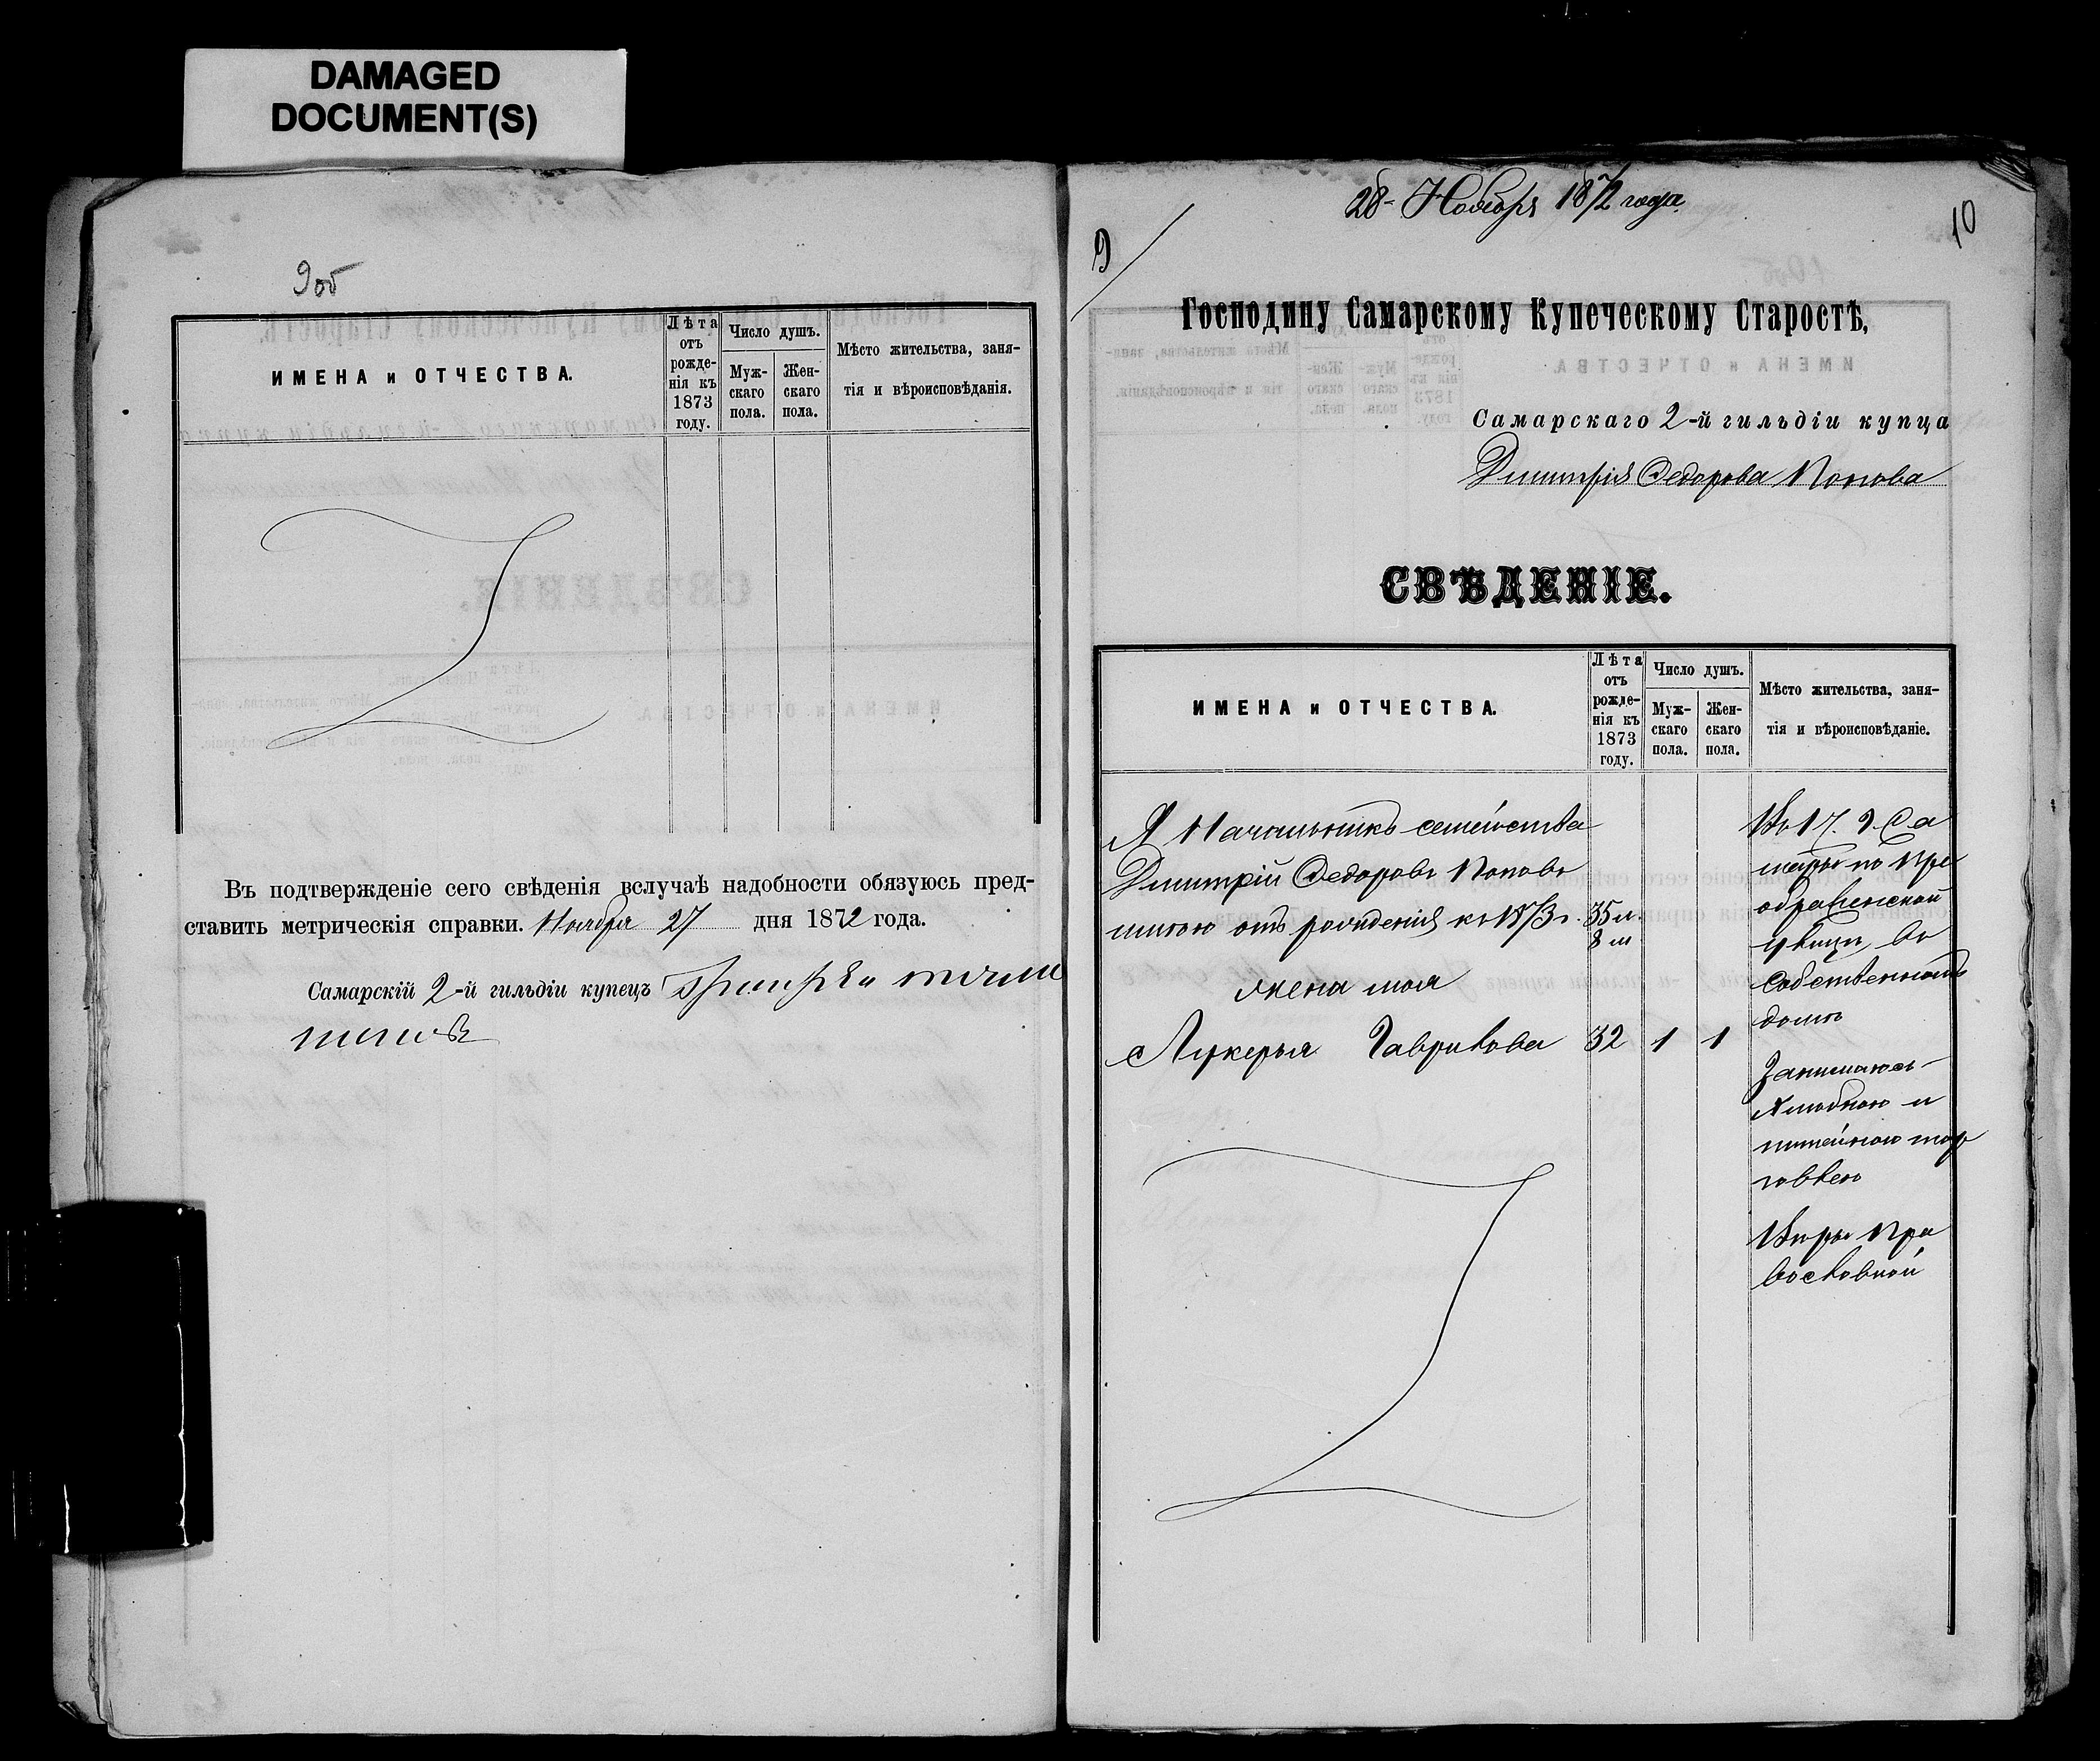 DAMAGED
DOCUMENT(S)
9об
ИМЕНА и ОТЧЕСТВА.
Лѣта
отъ
рожде-
нія къ
1873
году.
Число душъ.
Муж-
скаго
пола.
Жен-
скаго
пола.
Мѣсто жительства, заня-
тія и вѣроисповѣданія.
Въ подтвержденіе сего свѣденія вслучаѣ надобности обязуюсь пред-
ставить метрическія справки. Ноября 27 дня 1872 года.
Самарскій 2-й гильдіи купецъ
28 Ноября 1872 года
9
10
Господину Самарскому Купеческому Старостѣ,
Самарскаго 2-й гильдіи купца
Дмитрія Федорова Попова
СВѢДЕНІЕ.
ИМЕНА и ОТЧЕСТВА.
Лѣта
отъ
рожде-
нія къ
1873
году.
Число душъ.
Муж-
скаго
пола.
Жен-
скаго
пола.
Мѣсто жительства, заня-
тія и вѣроисповѣданіе.
Я Начальникъ семейства
Дмитрій Федоровъ Поповъ
мнѣ отъ рожденія къ 1873 г. 35 л.
8 м
жена моя
Лукерья Гаврилова 32 1 1
Въ 1 ч. г. Са
мары по Пре
ображенской
улицѣ, въ
собственномъ
домѣ
Занимаюсь
хлѣбною и
питейною тор
говлею
Вѣры Пра
вославной